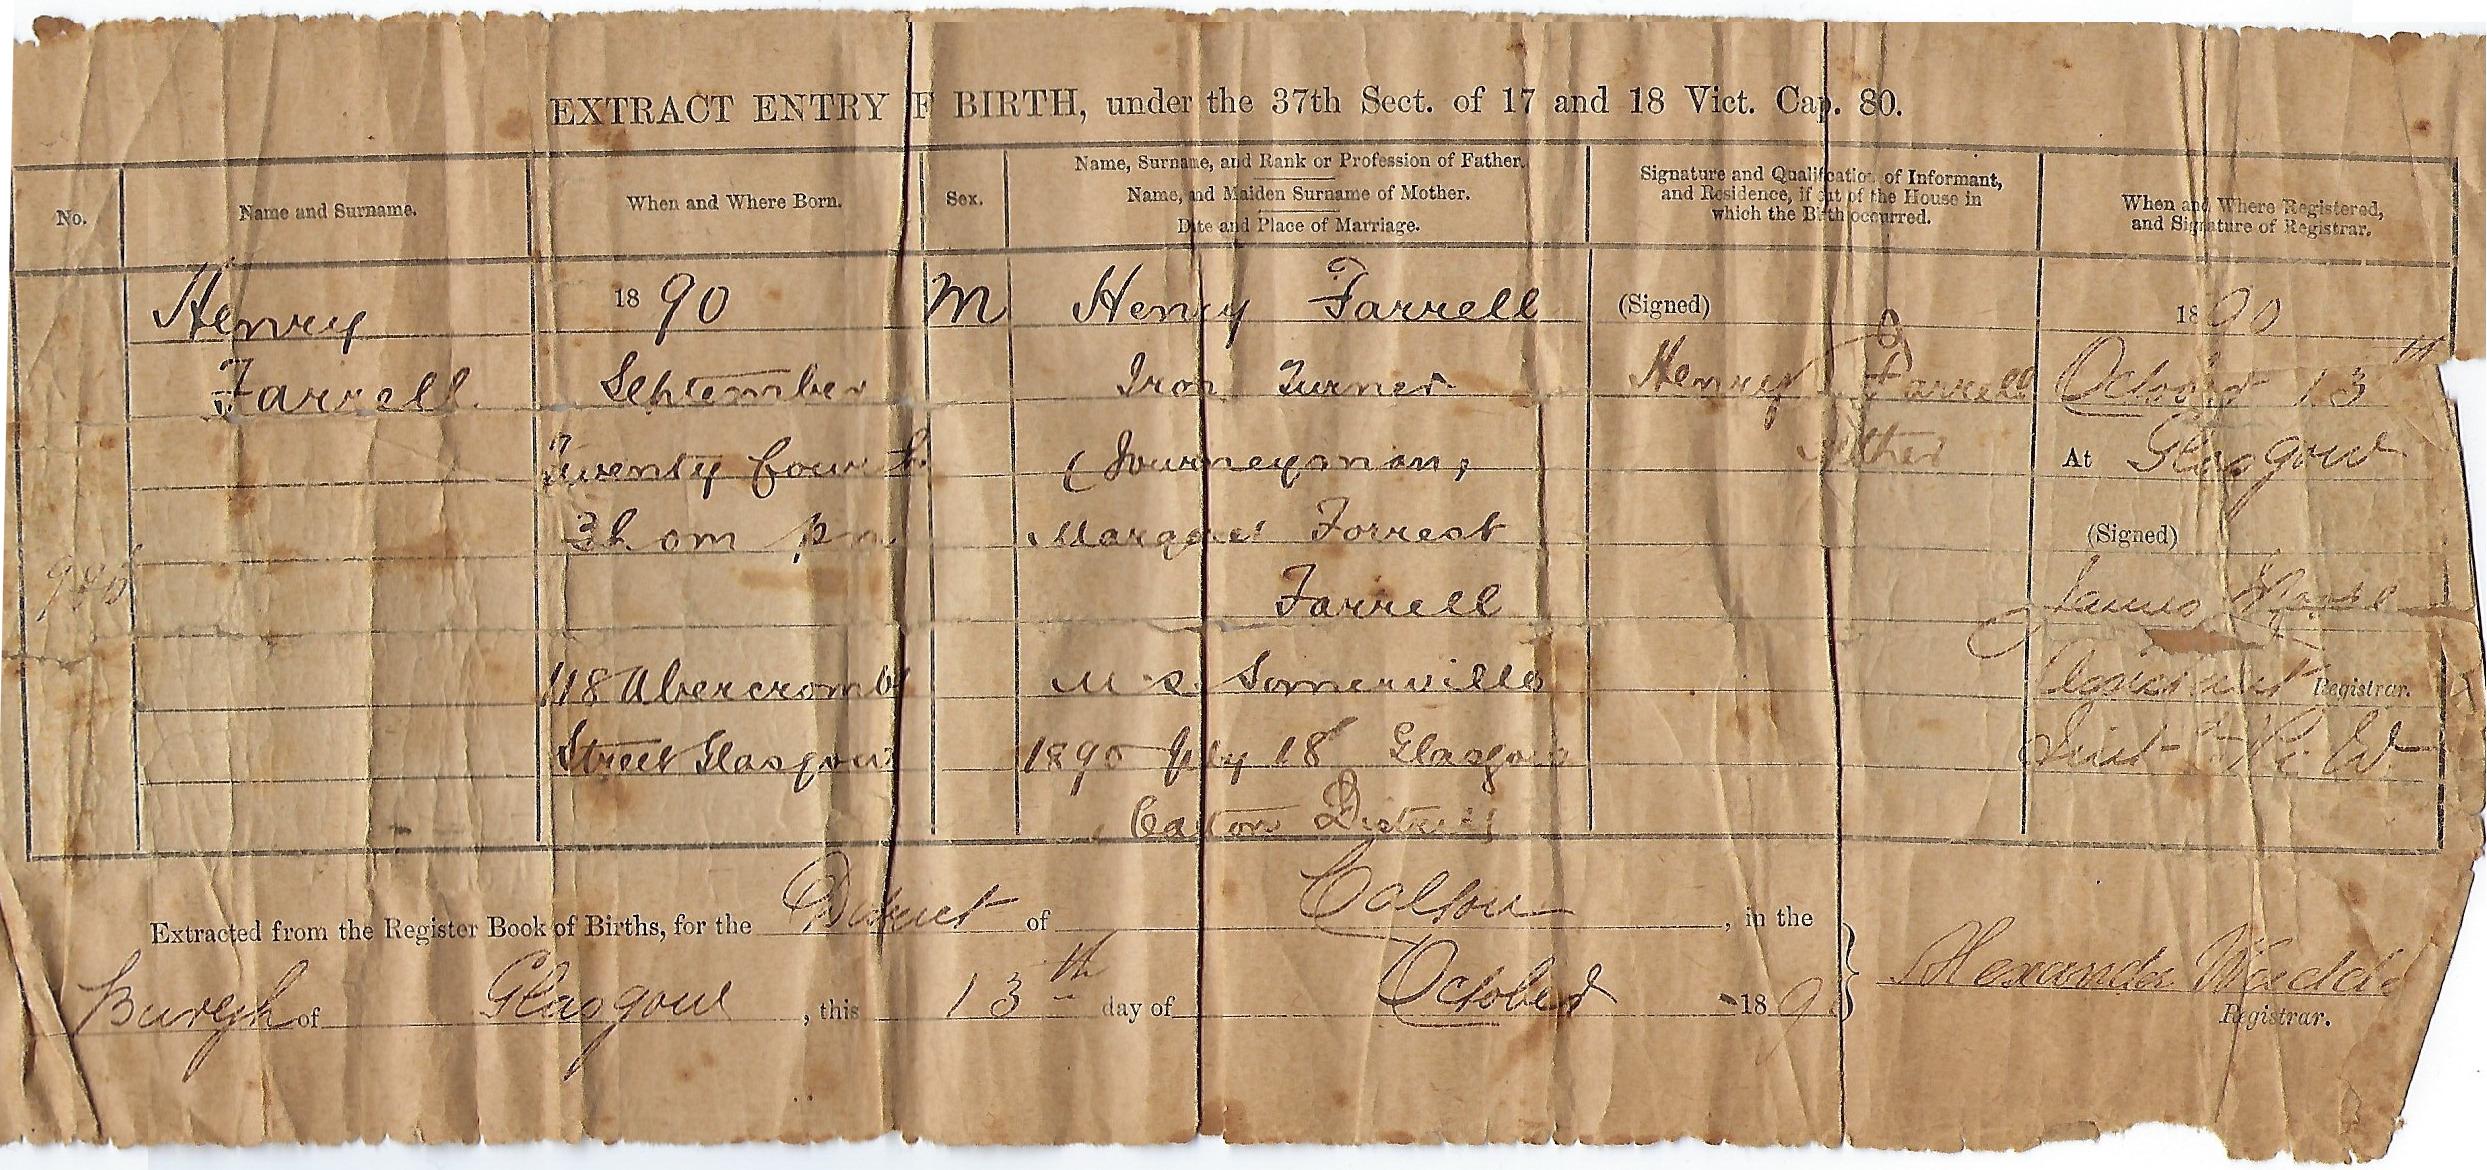 EXTRACT ENTRY F BIRTH, under the 37th Sect. of 17 and 18 Vict. Cap. 80.
No.
Name and Surname.
When and Where Born.
Sex.
Name, Surname, and Rank or Profession of Father.
Name, and Maiden Surname of Mother.
Date and Place of Marriage.
Signature and Qualification of Informant,
and Residence, if out of the House in
which the Birth occurred.
When and Where Registered,
and Signature of Registrar.
Henry
Farrell.
1890
September
Twenty fourth
3h 0m p m
118 Abercromby
Street Glasgow
M
Henry Farrell
Iron Turner
(Journeyman)
Margaret Forrest
Farrell
M.S. Somerville
1890 July 18 Glasgow
Calton District
(Signed)
Henry Farrell
Father
1890
October 13th
At Glasgow
(Signed)
James
Assistant Registrar.
Extracted from the Register Book of Births, for the District of Calton, in the
Burgh of Glasgow, this 13th day of October 189
Alexander
Registrar.